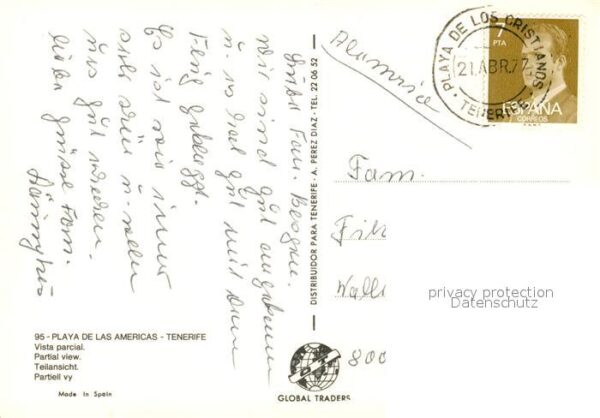 Liebe Fam.
wir sind gut angekommen
u. es hat gut mit dem
Flug geklappt.
Es ist wie immer
sehr schön u.
uns gut
liebe Grüsse Fam.
95 - PLAYA DE LAS AMERICAS - TENERIFE
Vista parcial.
Partial view.
Teilansicht.
Partiell vy
Made in Spain
DISTRIBUIDOR PARA TENERIFE - A. PEREZ DIAZ - TEL. 22 06 52
GLOBAL TRADERS
PLAYA DE LOS CRISTIANOS
21 ABR.77
TENERIFE
7
PTA
ESPAÑA
CORREOS
Fam.
privacy protection
Datenschutz
800